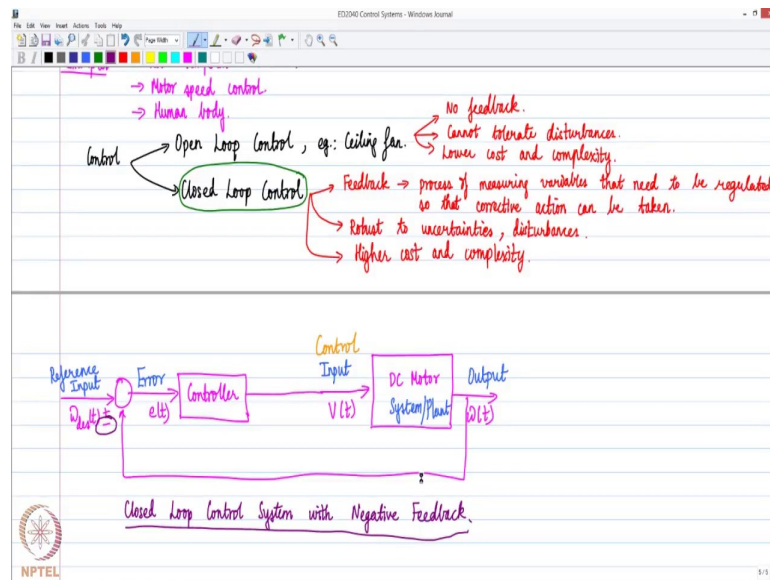 ED2040 Control Systems - Windows Journal
File Edit View Insert Actions Tools Help
Page Width
B I
→ Motor speed control.
→ Human body.
Control
Open Loop Control, eg.: Ceiling fan.
No feedback.
Cannot tolerate disturbances.
Lower cost and complexity.
Closed Loop Control
Feedback → process of measuring variables that need to be regulated
so that corrective action can be taken.
Robust to uncertainties, disturbances.
Higher cost and complexity.
Reference
Input
ω_des(t) +
−
Error
e(t)
Controller
Control
Input
V(t)
DC Motor
System/Plant
Output
ω(t)
Closed Loop Control System with Negative Feedback.
NPTEL
5/5